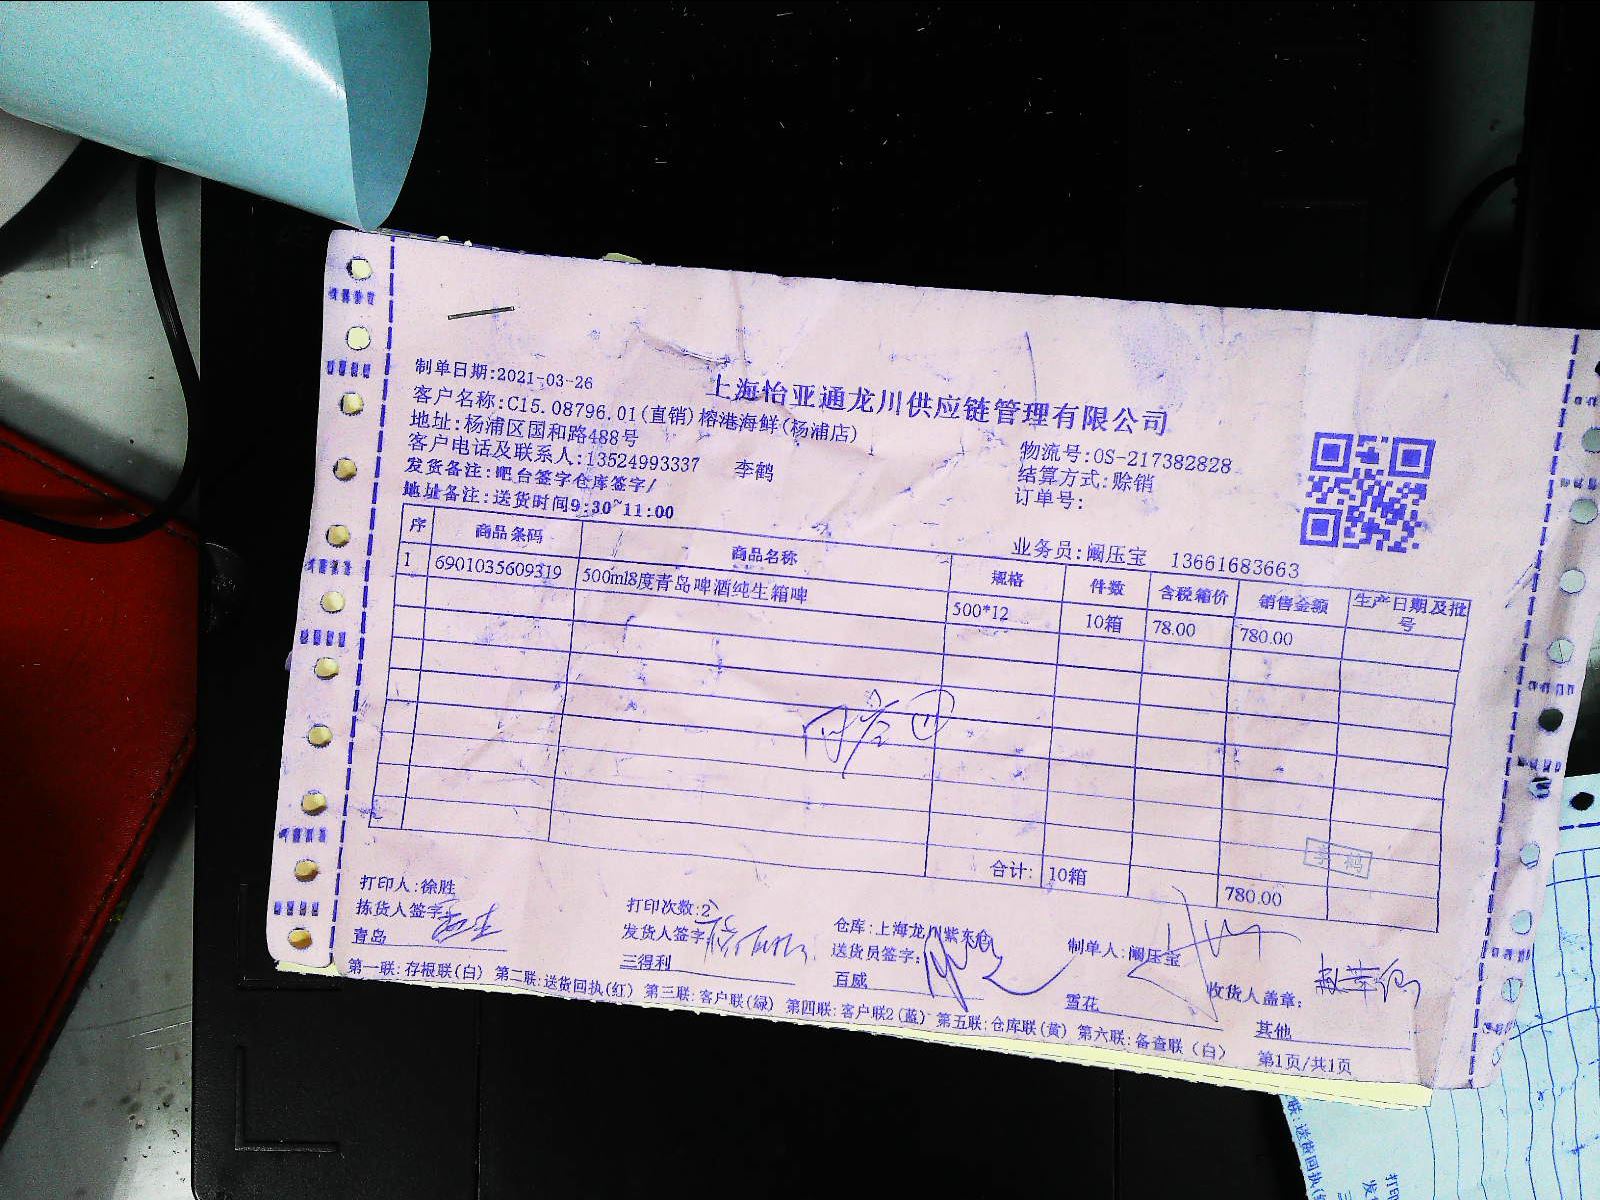 制单日期:2021-03-26
上海怡亚通龙川供应链管理有限公司
客户名称:C15.08796.01(直销)榕港海鲜(杨浦店)
地址:杨浦区国和路488号
客户电话及联系人:13524993337 李鹤
发货备注:吧台签字仓库签字/
地址备注:送货时间9:30~11:00
物流号:OS-217382828
结算方式:赊销
订单号:
业务员:阚压宝 13661683663
序 商品条码 商品名称 规格 件数 含税箱价 销售金额 生产日期及批号
1 6901035609319 500ml8度青岛啤酒纯生箱啤 500*12 10箱 78.00 780.00
合计: 10箱 780.00
李鹤
打印人:徐胜 打印次数:2 仓库:上海龙川紫东仓 制单人:阚压宝
拣货人签字 发货人签字 送货员签字: 收货人盖章:
青岛 三得利 百威 雪花 其他
第一联:存根联(白) 第二联:送货回执(红) 第三联:客户联(绿) 第四联:客户联2(蓝) 第五联:仓库联(黄) 第六联:备查联(白)
第1页/共1页
联:送货回执(